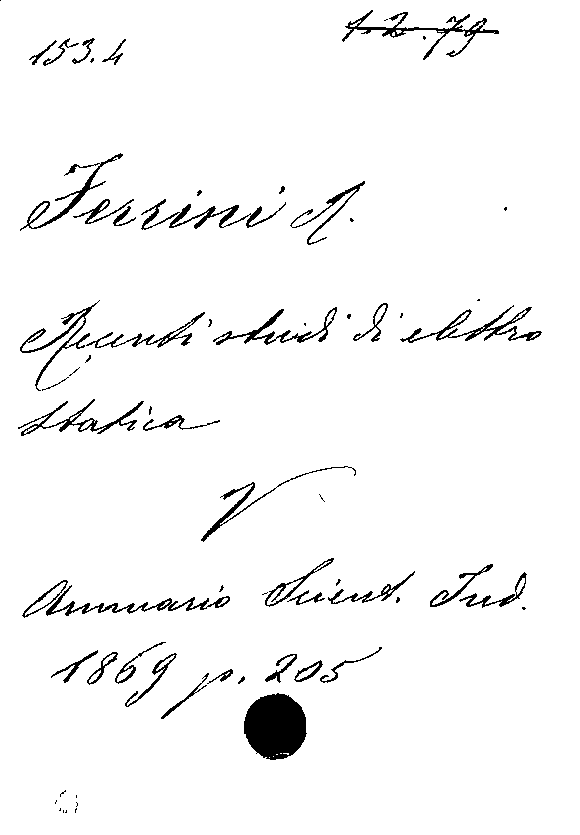 153.4
12.79
Ferrini R.
Recenti studi di elettro
statica
V.
Annuario Scient. Ind.
1869 p. 205